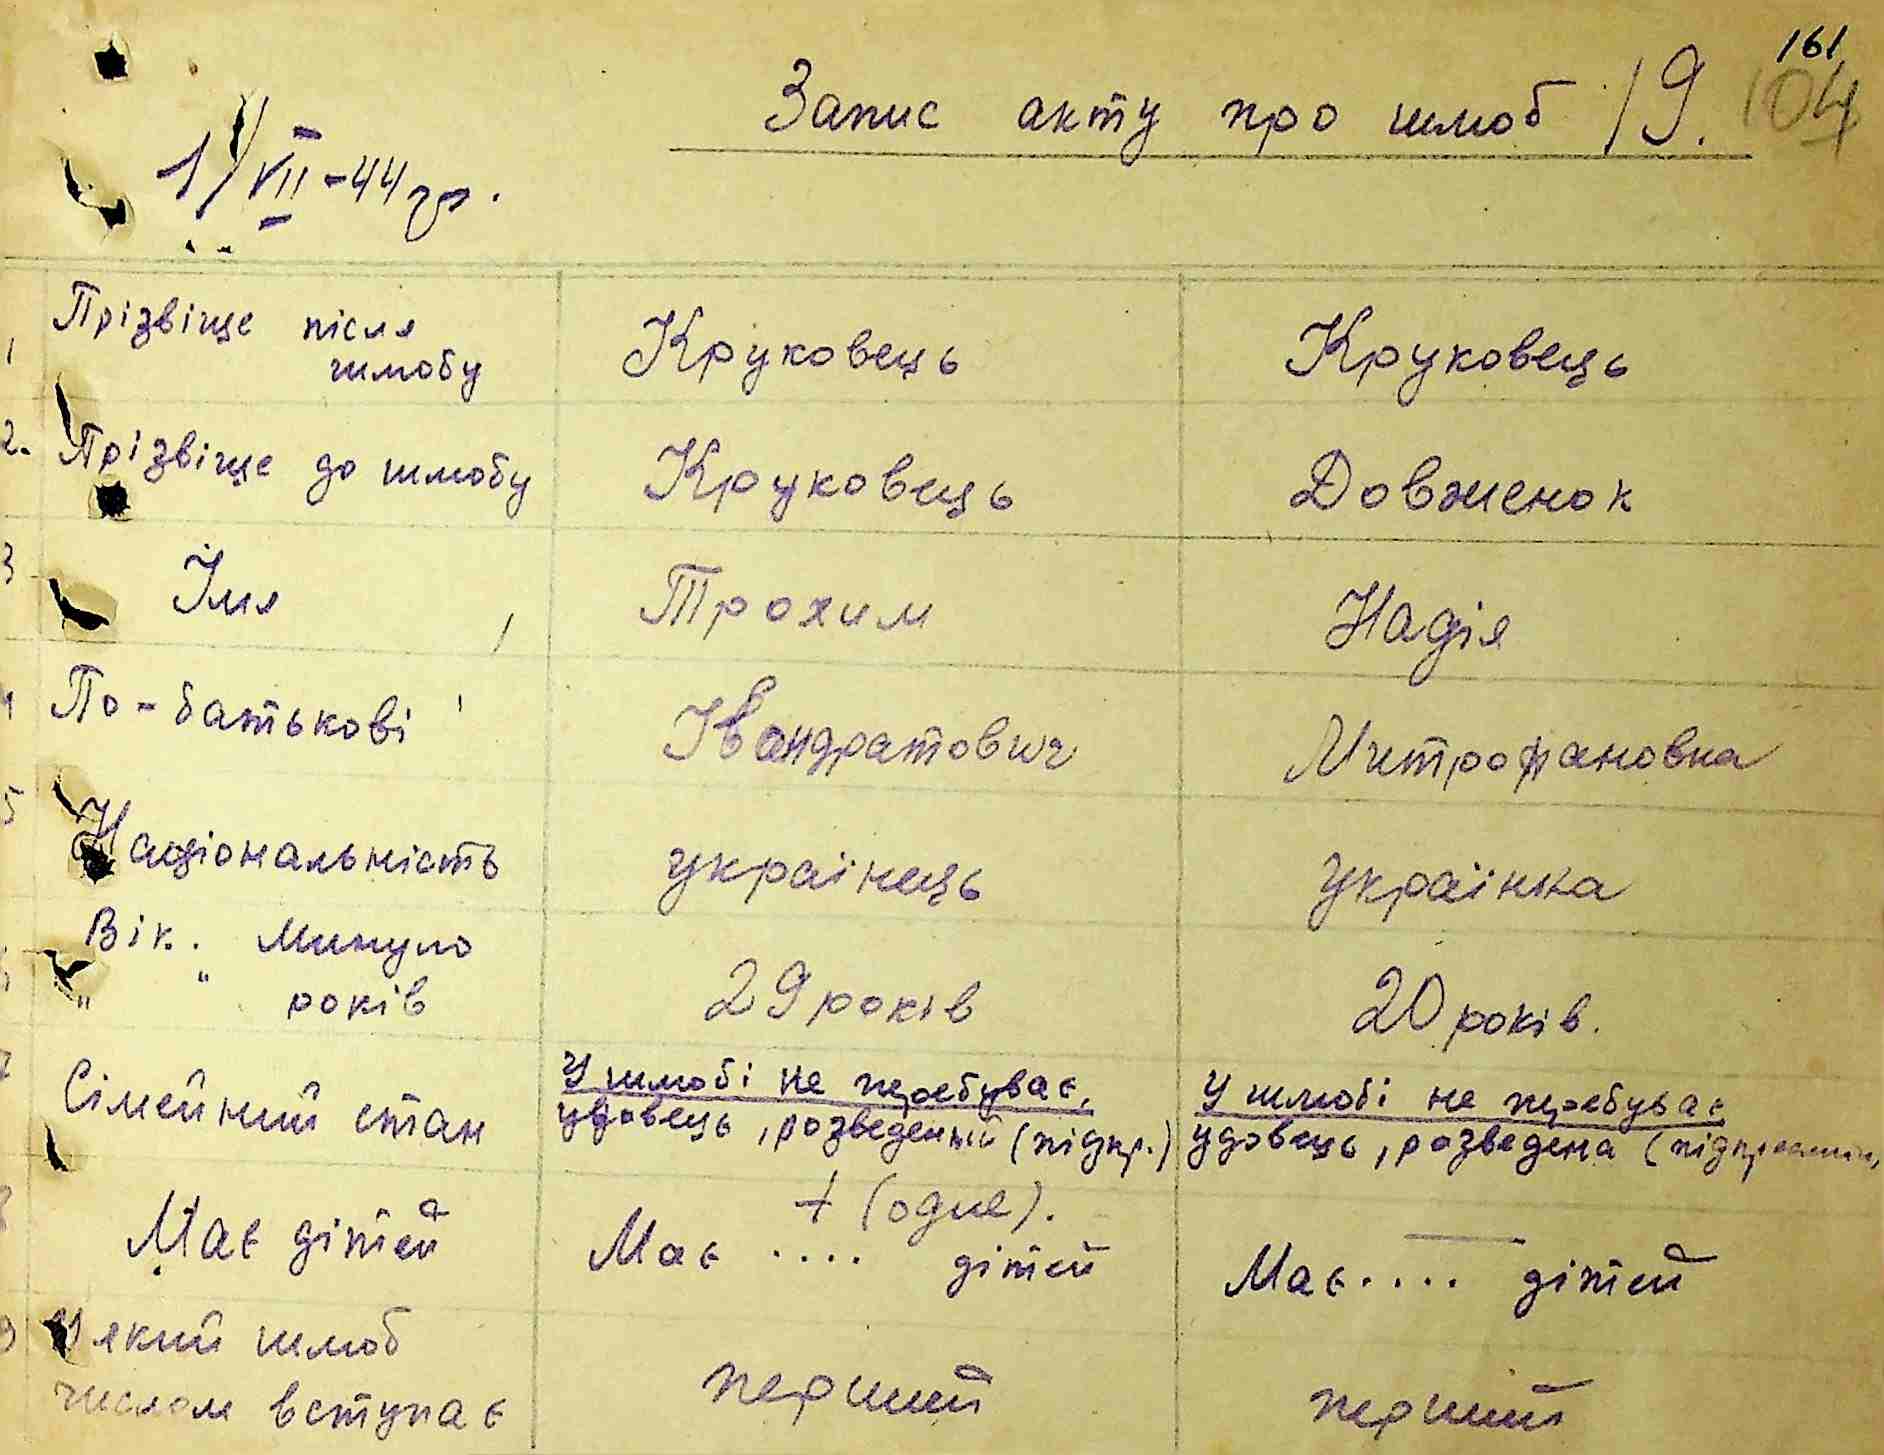 161
Запис акту про шлюб 19. 104
1/VII-44 р.
1 Прізвіще після шлюбу Круковець Круковець
2. Прізвіще до шлюбу Круковець Довженок
3 Імя Трохим Надія
4 По-батькові Івандратович Митрофановна
5 Національність українець українка
Вік. Минуло
" " років 29 років 20 років.
7 Сімейний стан У шлюбі не перебуває, У шлюбі не перебуває
удовець, розведений (підкр.) удовець, розведена
+ (одне). —
8 Має дітей Має .... дітей Має .... дітей
9 У який шлюб
числом вступає перший перший